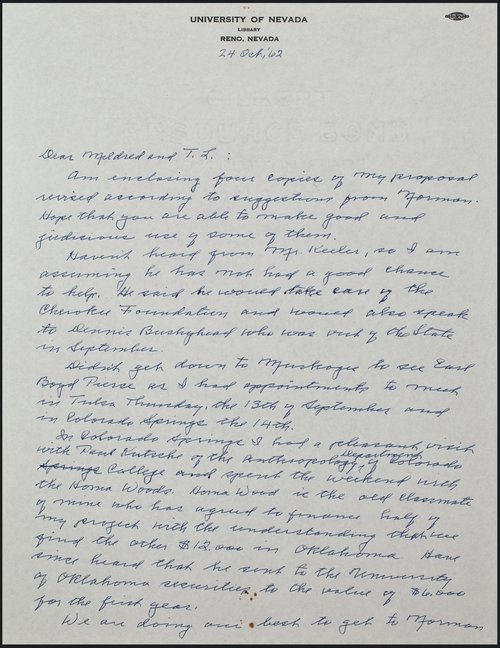 UNIVERSITY OF NEVADA
LIBRARY
RENO, NEVADA
24 Oct, '62
Dear Mildred and T. L. :
Am enclosing four copies of my proposal
revised according to suggestions from Norman.
Hope that you are able to make good and
judicious use of some of them.
Haven't heard from Mr. Keeler, so I am
assuming he has not had a good chance
to help. He said he would take care of the
Cherokee Foundation and would also speak
to Dennis Bushyhead who was out of the State
in September.
Didn't get down to Muskogee to see Earl
Boyd Pierce as I had appointments to meet
in Tulsa Thursday, the 13th of September and
in Colorado Springs the 14th.
In Colorado Springs I had a pleasant visit
with Paul Kutsche of the Anthropology Department, of Colorado
Springs College and spent the weekend with
the Homa Woods. Homa Wood is the old classmate
of mine who has agreed to finance half of
my project with the understanding that we
find the other $12,000 in Oklahoma. Have
since heard that he sent to the University
of Oklahoma securities to the value of $6,000
for the first year.
We are doing our best to get to Norman